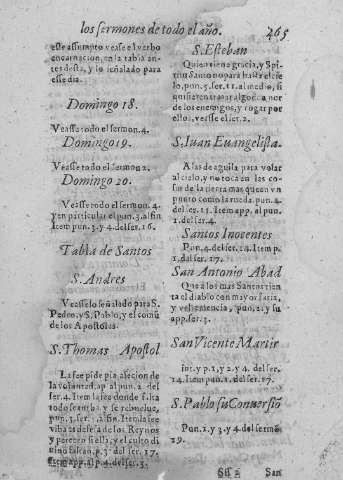 los sermones de todo el año. 465
este assumpto vease el verbo
encarnacion, en la tabla an-
tes desta, y lo señalado para
esse dia.
Domingo 18.
Vease todo el sermon. 4.
Domingo 19.
Vease todo el sermon 2.
Domingo 20.
Vease todo el sermon. 4.
y en particular el pun. 3. al fin
Item pun. 3. y 4. del ser. 16.
Tabla de Santos
S. Andres
Vease lo señalado para S.
Pedro, y S. Pablo, y el comũ
de los Apostoles.
S. Thomas Apostol
La fee pide pia afecion de
la voluntad, ap. al pun. 2. del
ser. 4. Item la fee donde
todo se
pun. 3. ser. al fin. Item la fee
de los Reynos
y perecerõ sï ella, y el culto di
uino faltãn, p. 3. del ser. 17.
Item app. al p. 4. del ser. 3.
S. Esteban
Quien tiene gracia, y Spi-
ritu Santo no para hasta el cie
lo, pun. 5. ser. 11. al medio, si
quisieren tratar algo a
de los enemigos, y rogar por
ello, vease el ser. 2.
S. Iuan Euangelista.
Alas de aguila para volar
al cielo, y no toca en las co-
sas de la tierra mas que en vn
punto como la rueda. pun. 4.
del ser. 15. Item app. al pun.
1. del ser. 4.
Santos Inocentes
Pun. 4. del ser. 24. Item p.
1. del ser. 17.
San Antonio Abad
Que a los mas Santos tien-
ta el diablo con mayor furia,
y vehemencia, pun. 2. y su
app. ser. 3.
San Vicente Martir
y p. 1. y 2. y 4. del ser.
14. Item pun. 1. del ser. 17.
S. Pablo su Conuersiõ
Pun. 2. y 3. y 4. del sermõ
19.
San